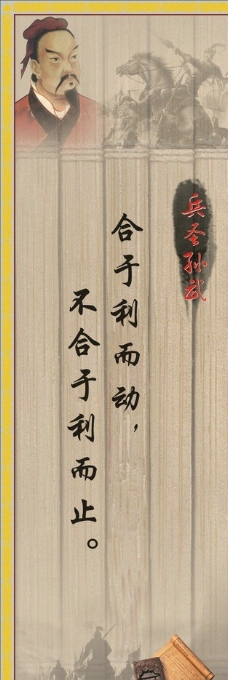 兵圣孙武
合于利而动，
不合于利而止。